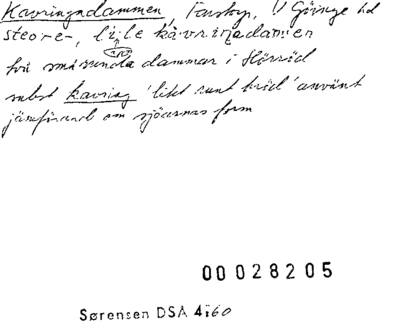 Kavringadammen, Farstorp, V Göinge hd
store-, lile kåvringadamen
två små runda dammar i Hörröd
subst kavring 'litet runt bröd' använt
jämförande om sjöarnas form
00028205
Sørensen DSA 4:60